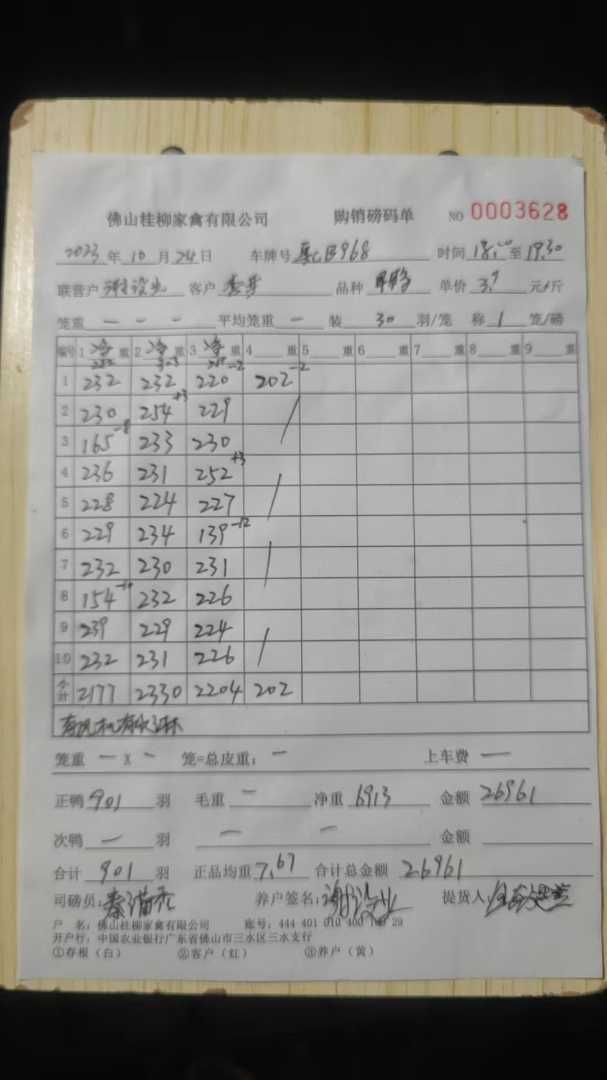 佛山桂柳家禽有限公司 购销磅码单 NO 0003628
2023 年 10 月 24 日 车牌号 968 时间 18:00 至 19:30
联营户 客户 品种 单价 3.9 元/斤
笼重 — — — 平均笼重 — 装 30 羽/笼 称 1 笼/磅
编号 1 净 重 2 净 重 3 净 重 4 重 5 重 6 重 7 重 8 重 9 重
1 232 232 220 -2 202 -2
2 230 254 +3 229
3 165 -8 233 230
4 236 231 252 +3
5 228 224 227
6 229 234 139 -12
7 232 230 231
8 154 232 226
9 239 229 224
10 232 231 226
小计 2177 2330 2204 202
笼重 — X — 笼=总皮重: — 上车费 —
正鸭 901 羽 毛重 — 净重 6913 金额 26961
次鸭 — 羽 — — 金额
合计 901 羽 正品均重 7.67 合计总金额 26961
司磅员: 养户签名: 提货人:
户 名: 佛山桂柳家禽有限公司 账号: 444 401 010 400 29
开户行: 中国农业银行广东省佛山市三水区三水支行
①存根(白) ②客户(红) ③养户(黄)